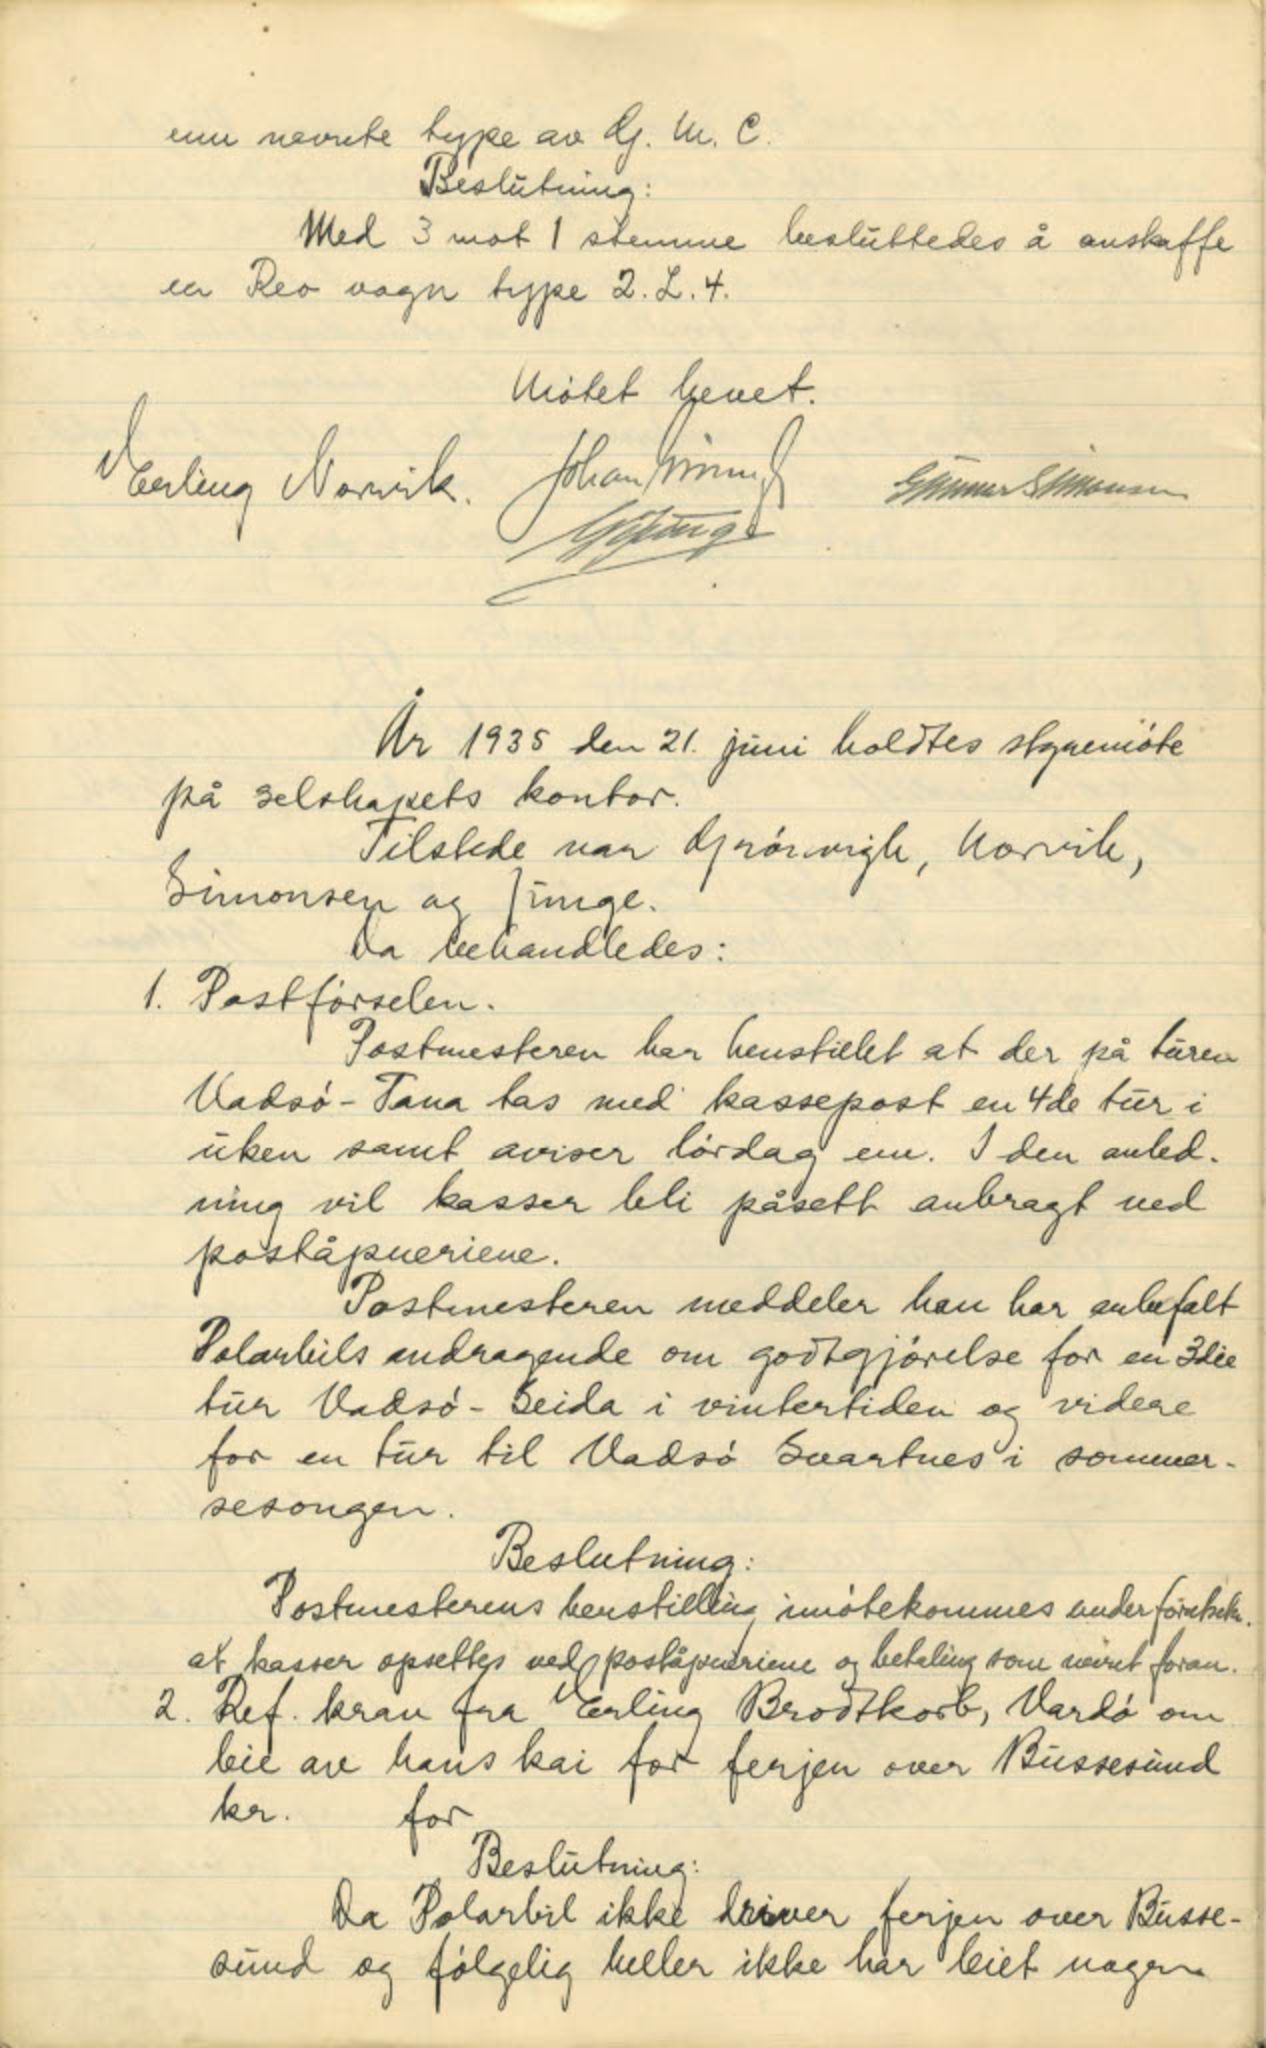 enn nevnte type av G. M. C.
Beslutning:
Med 3 mot 1 stemme besluttedes å anskaffe
en Reo vogn type 2. L. 4.
Møtet hevet.
Erling Norvik. Johan Gunnar Simonsen
År 1935 den 21. juni holdtes styremøte
på selskapets kontor.
Tilstede var Grønvigh, Norvik,
Simonsen og Junge.
Da behandledes:
1. Postførselen.
Postmesteren har henstillet at der på turen
Vadsø - Tana tas med kassepost en 4de tur i
uken samt aviser lørdag em. I den anled-
ning vil kasser bli påsett anbragt ved
poståpneriene.
Postmesteren meddeler han har anbefalt
Polarbils andragende om godtgjørelse for en 3die
tur Vadsø - Seida i vintertiden og videre
for en tur til Vadsø Svartnes i sommer-
sesongen.
Beslutning:
Postmesterens henstilling imøtekommes under forutsetn.
at kasser opsettes ved poståpneriene og betaling som nevnt foran.
2. Ref. krav fra Erling Brodtkorb, Vardø om
leie av hans kai for ferjen over Bussesund
kr. for
Beslutning:
Da Polarbil ikke driver ferjen over Busse-
sund og følgelig heller ikke har leiet nogen